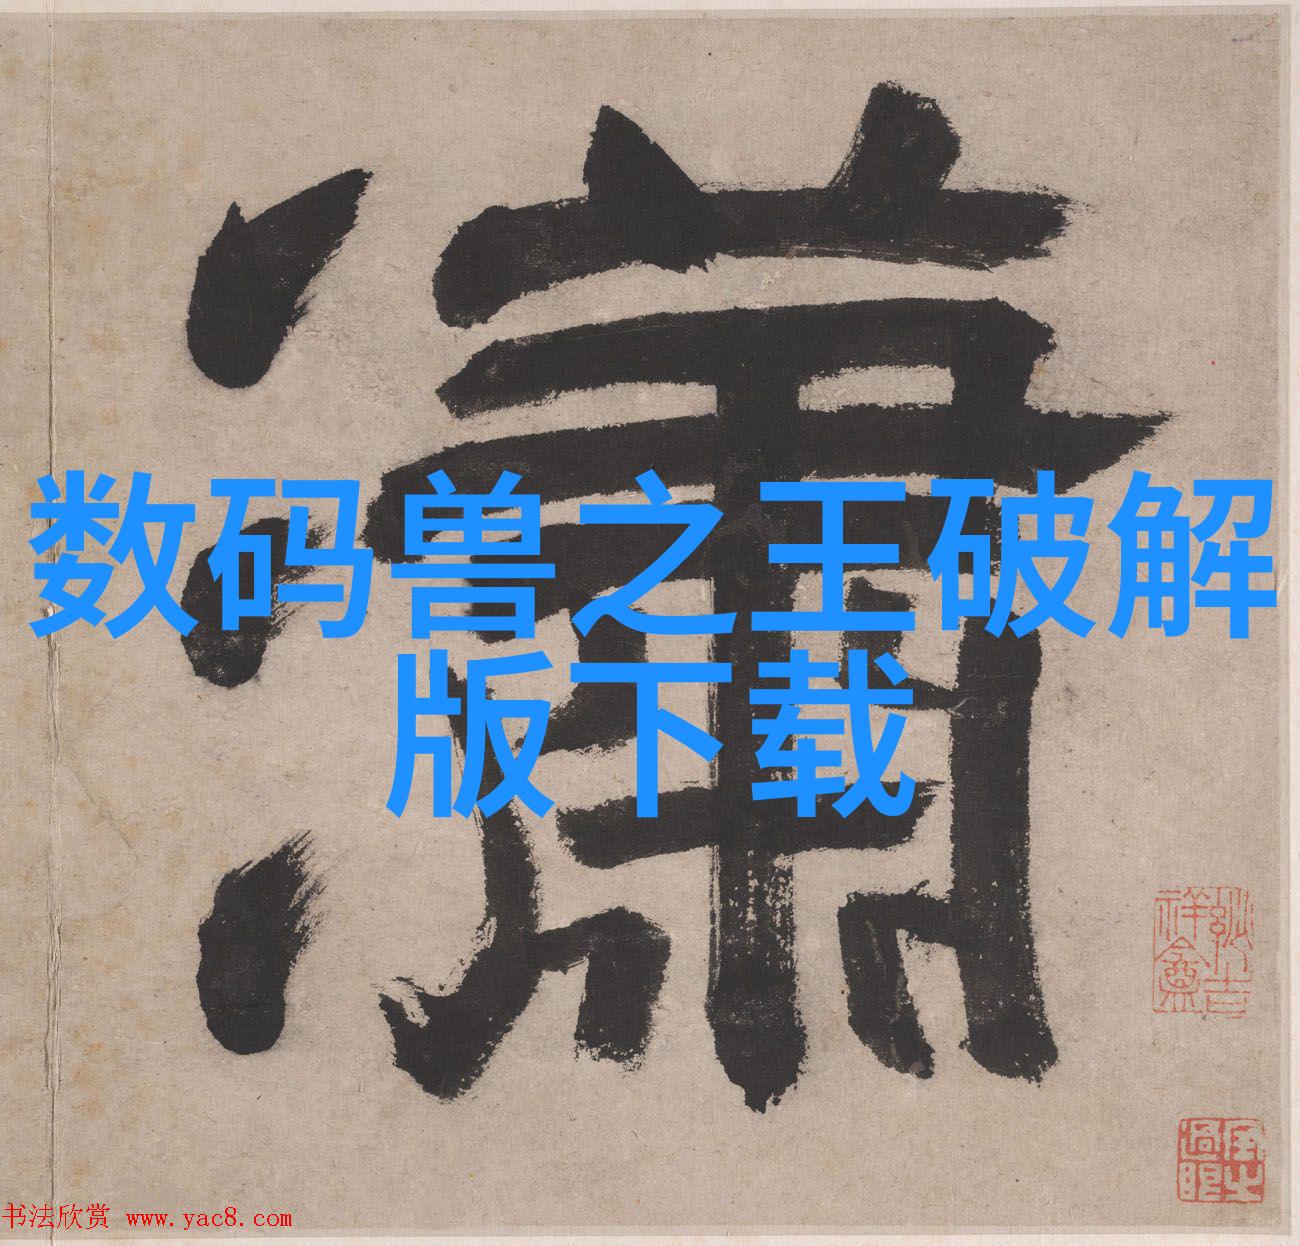 瀟
数码兽之王破解
版下载
书法欣赏 www.yac8.com